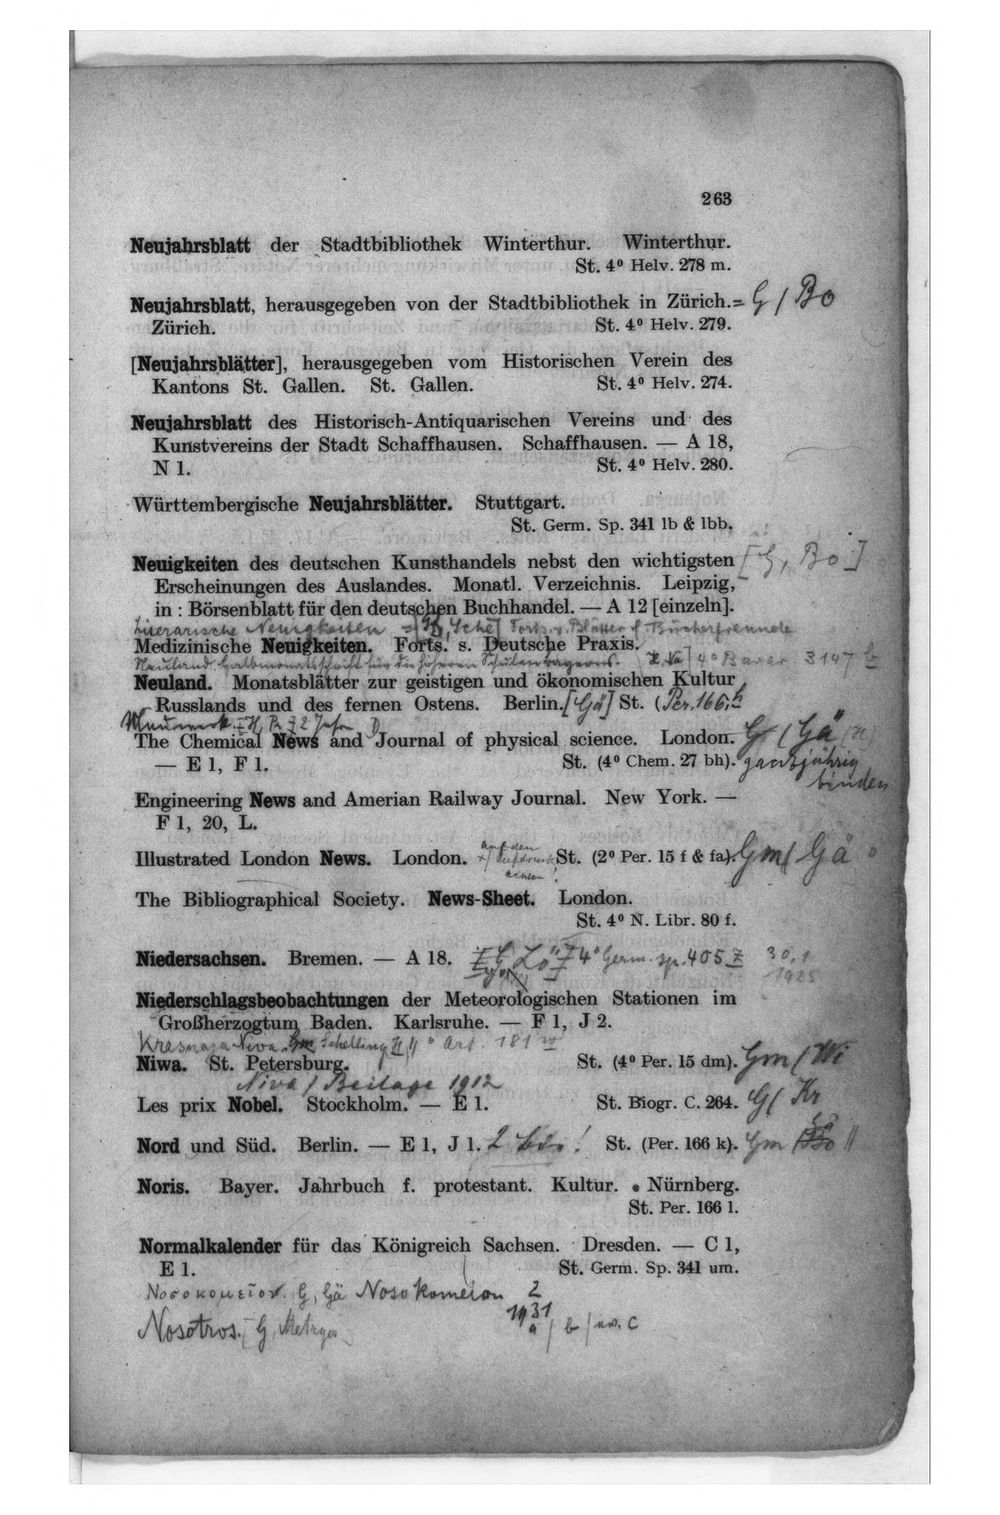 263
Neujahrsblatt der Stadtbibliothek Winterthur. Winterthur.
St. 4⁰ Helv. 278 m.
Neujahrsblatt, herausgegeben von der Stadtbibliothek in Zürich. = G / Bo
Zürich. St. 4⁰ Helv. 279.
[Neujahrsblätter], herausgegeben vom Historischen Verein des
Kantons St. Gallen. St. Gallen. St. 4⁰ Helv. 274.
Neujahrsblatt des Historisch-Antiquarischen Vereins und des
Kunstvereins der Stadt Schaffhausen. Schaffhausen. — A 18,
N 1. St. 4⁰ Helv. 280.
Württembergische Neujahrsblätter. Stuttgart.
St. Germ. Sp. 341 lb & lbb.
Neuigkeiten des deutschen Kunsthandels nebst den wichtigsten [G, Bo]
Erscheinungen des Auslandes. Monatl. Verzeichnis. Leipzig,
in : Börsenblatt für den deutschen Buchhandel. — A 12 [einzeln].
Literarische Neuigkeiten Forts. v. Blätter f. Bücherfreunde
Medizinische Neuigkeiten. Forts. s. Deutsche Praxis.
Neuland. Halbmonatsschrift für die höheren Schulen Bayerns. 4⁰ Bavar. 3147
Neuland. Monatsblätter zur geistigen und ökonomischen Kultur
Russlands und des fernen Ostens. Berlin. [Gä] St. (Per. 166, h
The Chemical News and Journal of physical science. London. G / Gä
— E 1, F 1. St. (4⁰ Chem. 27 bh). ganzjährig
binden
Engineering News and Amerian Railway Journal. New York. —
F 1, 20, L.
auf den
Illustrated London News. London. St. (2⁰ Per. 15 f & fa). Gm / Gä
achten!
The Bibliographical Society. News-Sheet. London.
St. 4⁰ N. Libr. 80 f.
Niedersachsen. Bremen. — A 18. 4⁰ Germ. sp. 405 z 30,1
1925
Niederschlagsbeobachtungen der Meteorologischen Stationen im
Großherzogtum Baden. Karlsruhe. — F 1, J 2.
Krasnaja Niva. Gm, Schelling 181
Niwa. St. Petersburg. St. (4⁰ Per. 15 dm). Gm / Wi
Niva / Beilage 1912
Les prix Nobel. Stockholm. — E 1. St. Biogr. C. 264. G / Kr
Nord und Süd. Berlin. — E 1, J 1. St. (Per. 166 k). Gm
Noris. Bayer. Jahrbuch f. protestant. Kultur. Nürnberg.
St. Per. 166 l.
Normalkalender für das Königreich Sachsen. Dresden. — C 1,
E 1. St. Germ. Sp. 341 um.
Νοσοκομεῖον. G, Gä Nosokomeion 2
1931
Nosotros. [G, Metzger] a / b / c